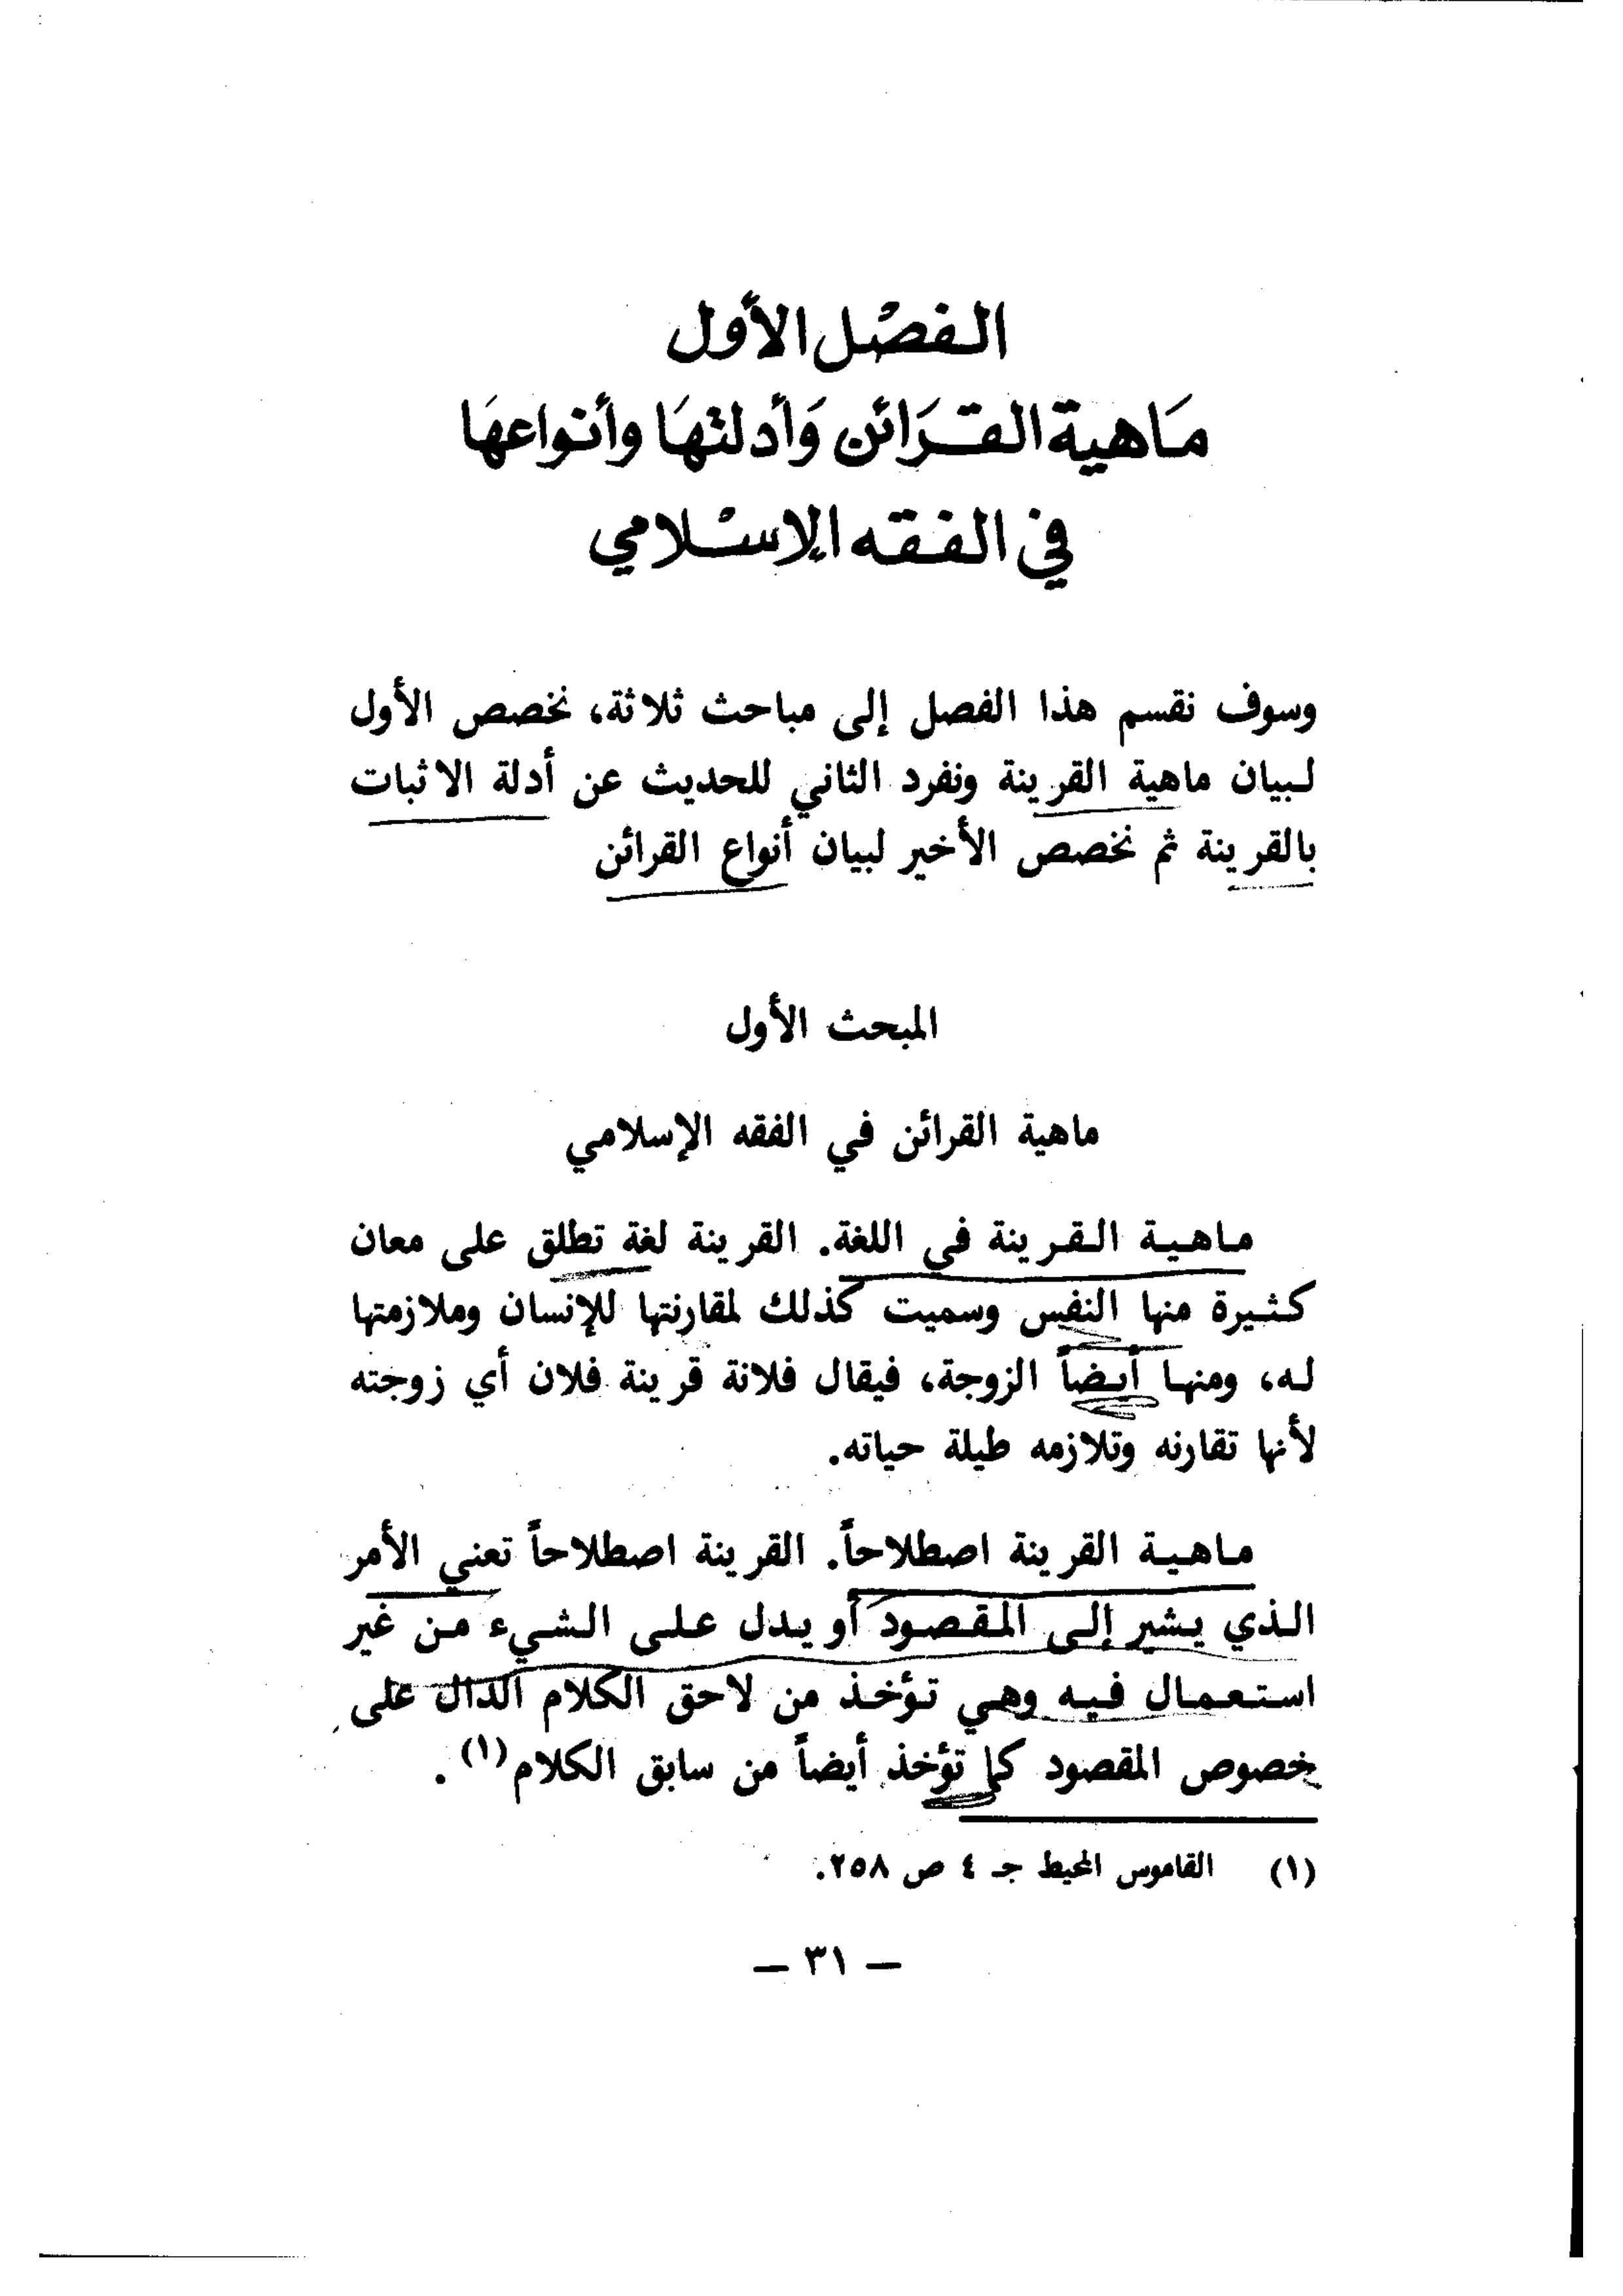 الفصْل الأول
مَاهية القـرَائن وَأدلتهَا وأنواعهَا
في الفقه الإسْلامي
وسوف نقسم هذا الفصل إلى مباحث ثلاثة، نخصص الأول
لبيان ماهية القرينة ونفرد الثاني للحديث عن أدلة الاثبات
بالقرينة ثم نخصص الأخير لبيان أنواع القرائن
المبحث الأول
ماهية القرائن في الفقه الإسلامي
ماهية القرينة في اللغة. القرينة لغة تطلق على معان
كثيرة منها النفس وسميت كذلك لمقارنتها للإنسان وملازمتها
له، ومنها أيضاً الزوجة، فيقال فلانة قرينة فلان أي زوجته
لأنها تقارنه وتلازمه طيلة حياته.
ماهية القرينة اصطلاحاً. القرينة اصطلاحاً تعني الأمر
الذي يشير إلى المقصود أو يدل على الشيء من غير
استعمال فيه وهي تؤخذ من لاحق الكلام الدال على
خصوص المقصود كما تؤخذ أيضاً من سابق الكلام(١).
(١) القاموس المحيط جـ ٤ ص ٢٥٨.
— ٣١ —